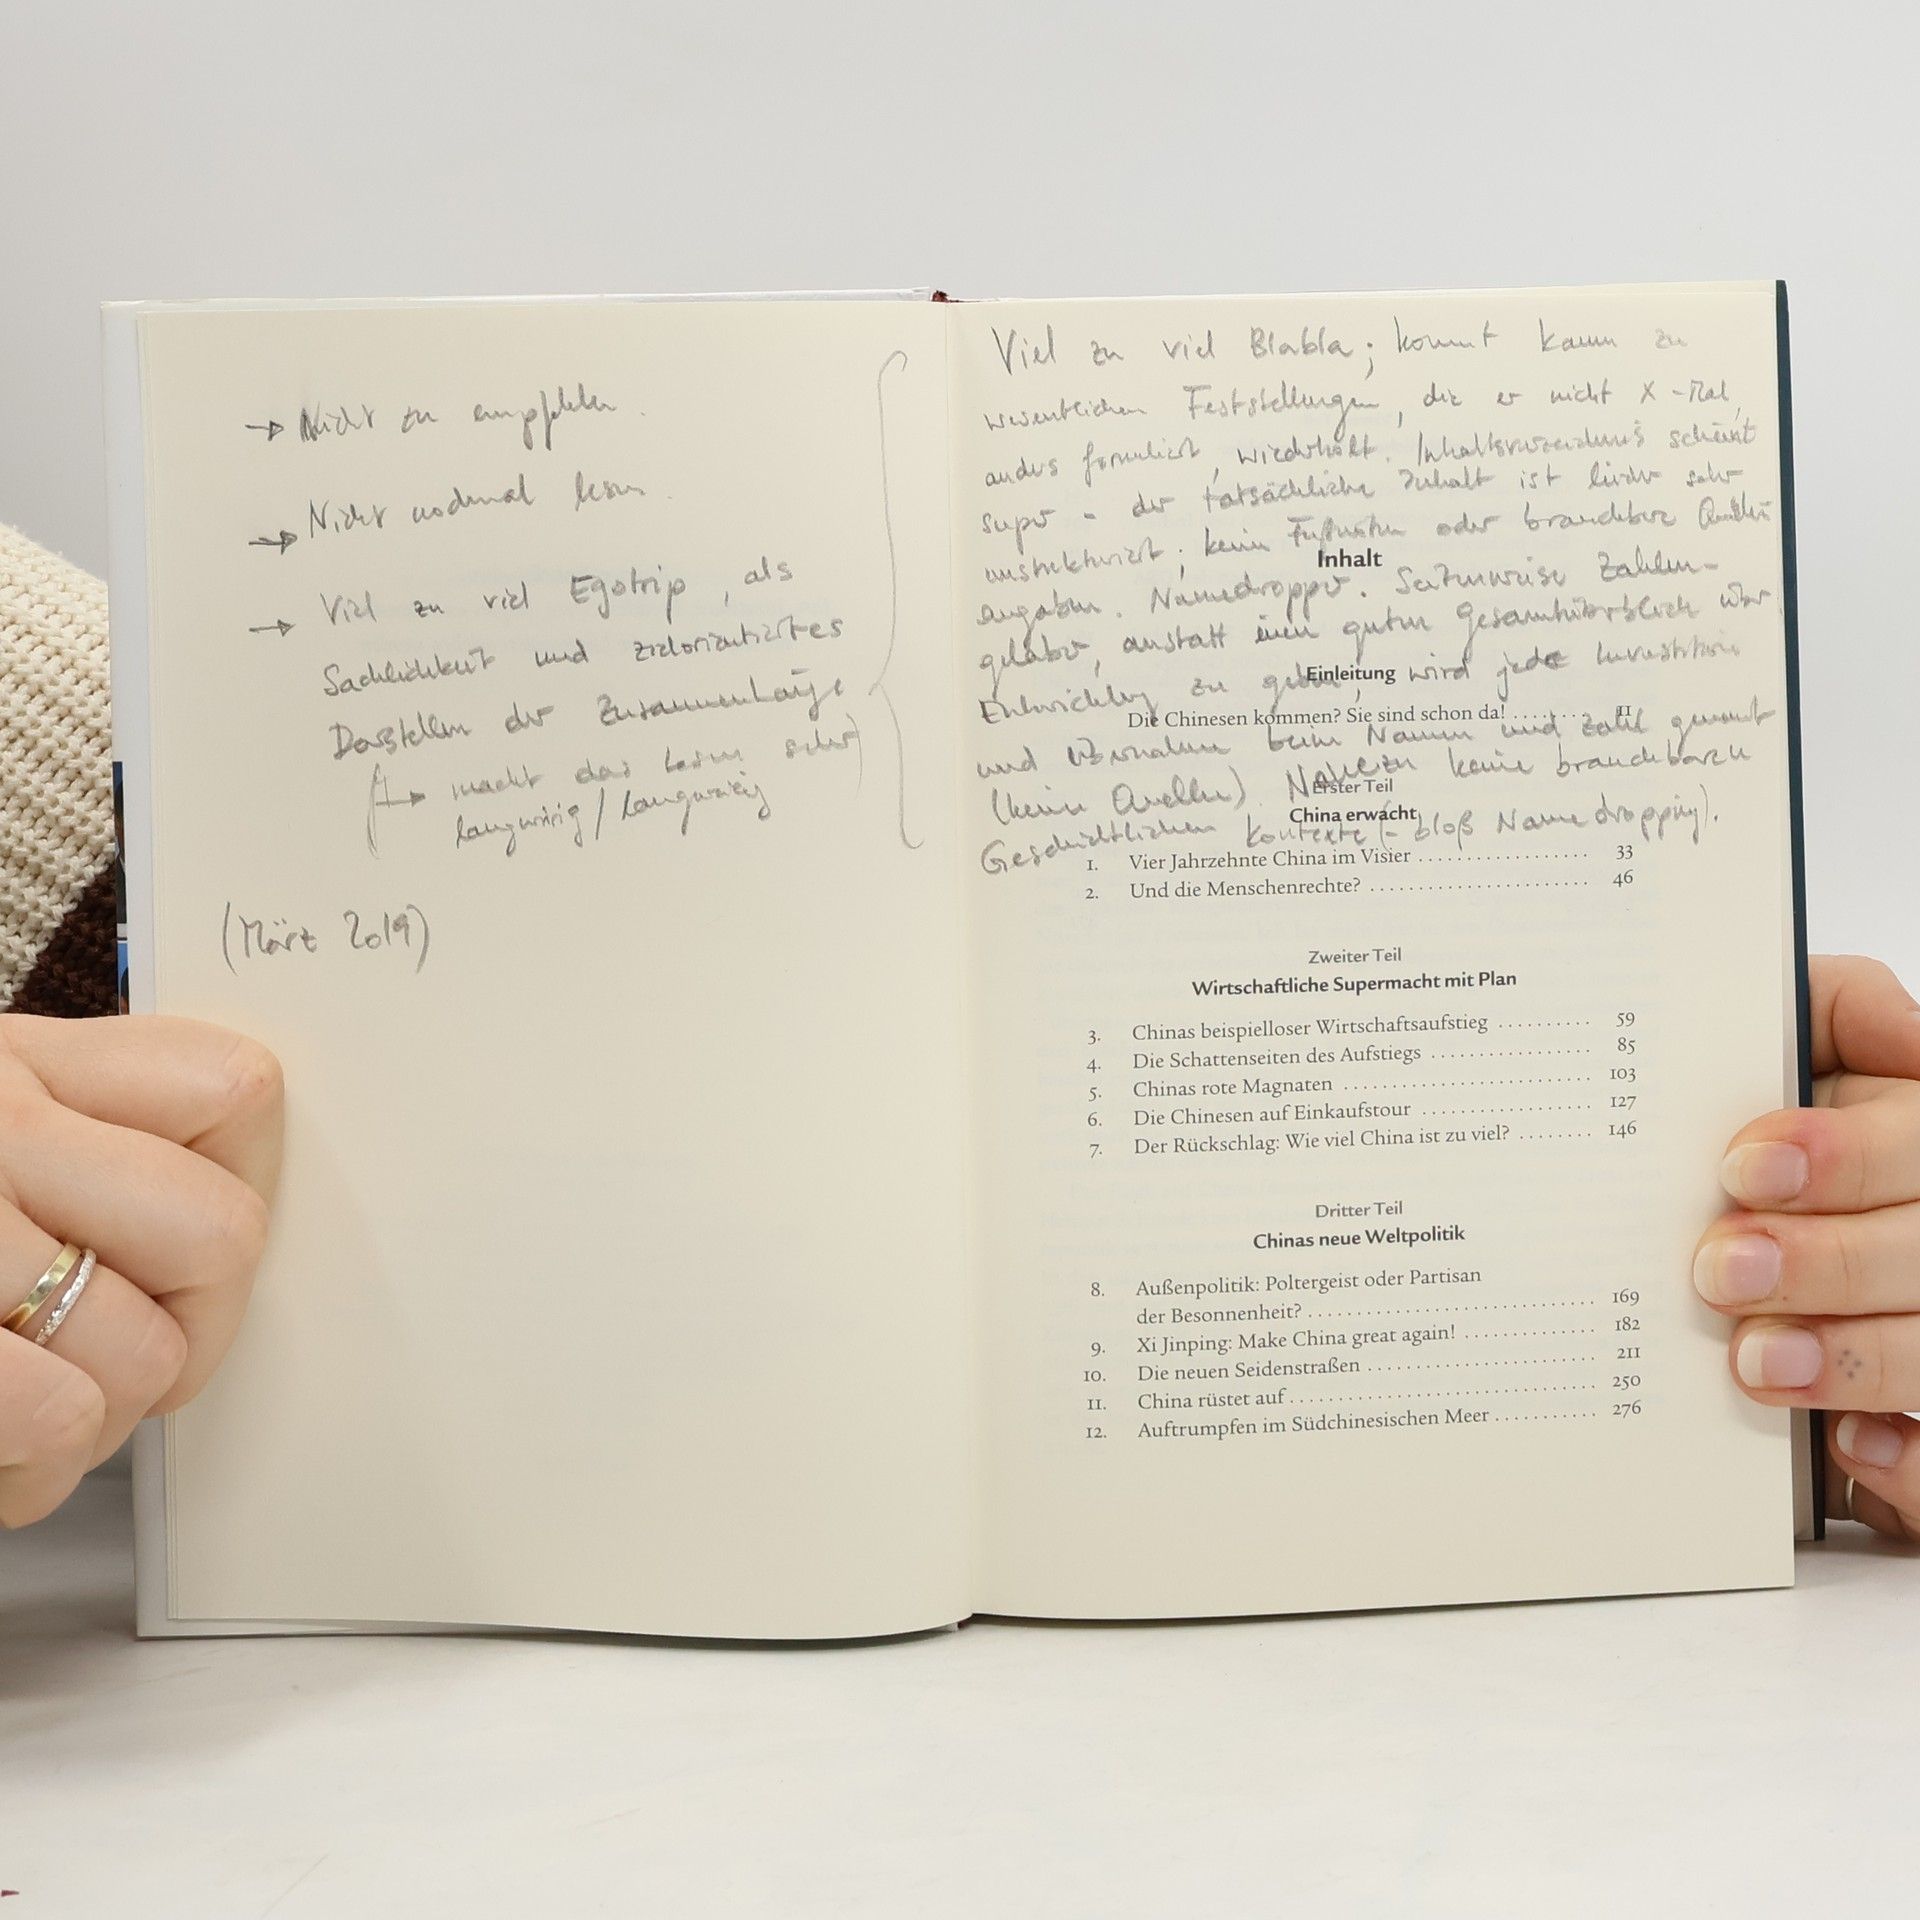 → Nicht zu empfehlen.
→ Nicht nochmal lesen.
→ Viel zu viel Egotrip, als
Sachlichkeit und zielorientiertes
Darstellen der Zusammenhänge
↳ macht das Lesen sehr
langwierig / langweilig
(März 2019)
Viel zu viel Blabla; kommt kaum zu
wesentlichen Feststellungen, die er nicht X-Mal,
anders formuliert, wiederholt. Inhaltsverzeichnis scheint
super - der tatsächliche Inhalt ist leider sehr
unstrukturiert; keine Fußnoten oder brauchbare Quellen
angaben. Namedropper. Seitenweise Zahlen-
gelaber, anstatt einen guten Gesamtüberblick über
Entwicklung zu geben, wird jede Investition
und Übernahme beim Namen und Zahl genannt
(keine Quellen). Nahezu keine brauchbaren
Geschichtlichen Kontexte (- bloß Namedropping).
Inhalt
Einleitung
Die Chinesen kommen? Sie sind schon da! ........ 11
Erster Teil
China erwacht
1. Vier Jahrzehnte China im Visier .................. 33
2. Und die Menschenrechte? ....................... 46
Zweiter Teil
Wirtschaftliche Supermacht mit Plan
3. Chinas beispielloser Wirtschaftsaufstieg .......... 59
4. Die Schattenseiten des Aufstiegs ................. 85
5. Chinas rote Magnaten .......................... 103
6. Die Chinesen auf Einkaufstour .................. 127
7. Der Rückschlag: Wie viel China ist zu viel? ........ 146
Dritter Teil
Chinas neue Weltpolitik
8. Außenpolitik: Poltergeist oder Partisan
der Besonnenheit? .............................. 169
9. Xi Jinping: Make China great again! .............. 182
10. Die neuen Seidenstraßen ........................ 211
11. China rüstet auf ................................ 250
12. Auftrumpfen im Südchinesischen Meer ........... 276